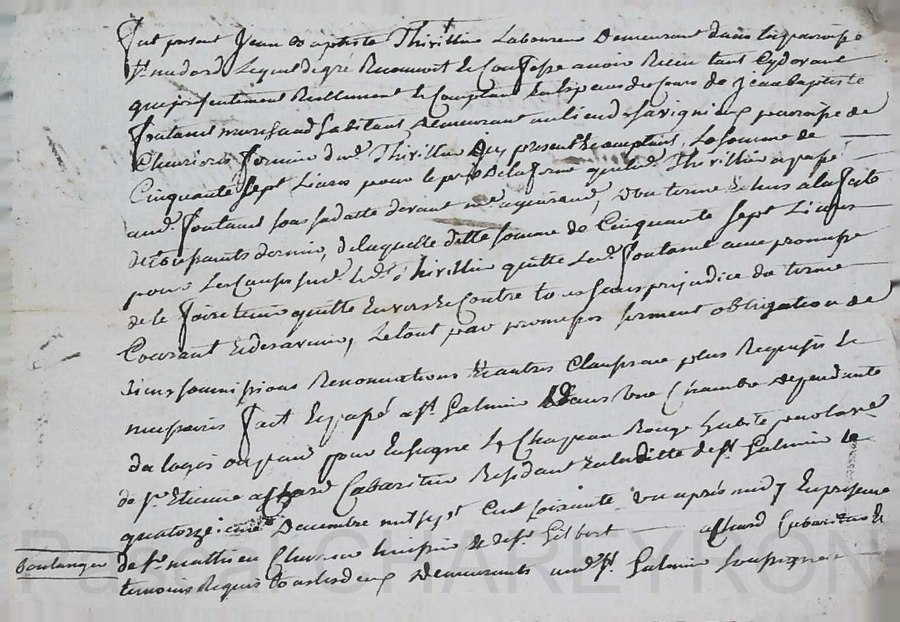 fut present Jean Baptiste Thivillin Laboureur Demeurant dans la parroisse
St medard Lequel de gré Reconnoit Et Confesse avoir Receu tant cydevant
que presentement Reellement Et Comptant En Especes de cours de Jean baptiste
fontanel marchand habitant Demeurant au lieu de Savignieu parroisse de
Chevrieres fermier dud. Thivillin icy present Et acceptant, La somme de
Cinquante Sept Livres pour le prix De la ferme que led. Thivillin a passé
aud. fontanel sous sa datte devant me. , D'un terme Echus a la fete
de toussaints dernier, de laquelle ditte somme de Cinquante Sept Livres
pour Les Causes sus. led. Thivillin quitte Led. fontanel avec promesse
de le faire tenir quitte Envers Et Contre tous sans prejudice du terme
Courant Et des avenir, Le tout par promesses serment obligation de
biens soumissions Renonciations Et autres Clauses au plus Requises Et
necessaires fait Et passé a St Galmier Dans Une Chambre dependante
du logis ou pend pour Enseigne Le Chapeau Rouge habité par
de Sr Etienne Cabaretier Residant En laditte de St Galmier le
quatorzieme Decembre mil sept Cent soixante Un apres midy En presence
boulanger
de Sr mathieu huissier Et de Sr Gilbert Cabaretier Et
temoins Requis tous les deux Demeurants aud. St Galmier Soussignes
Pascal CHAREYRON